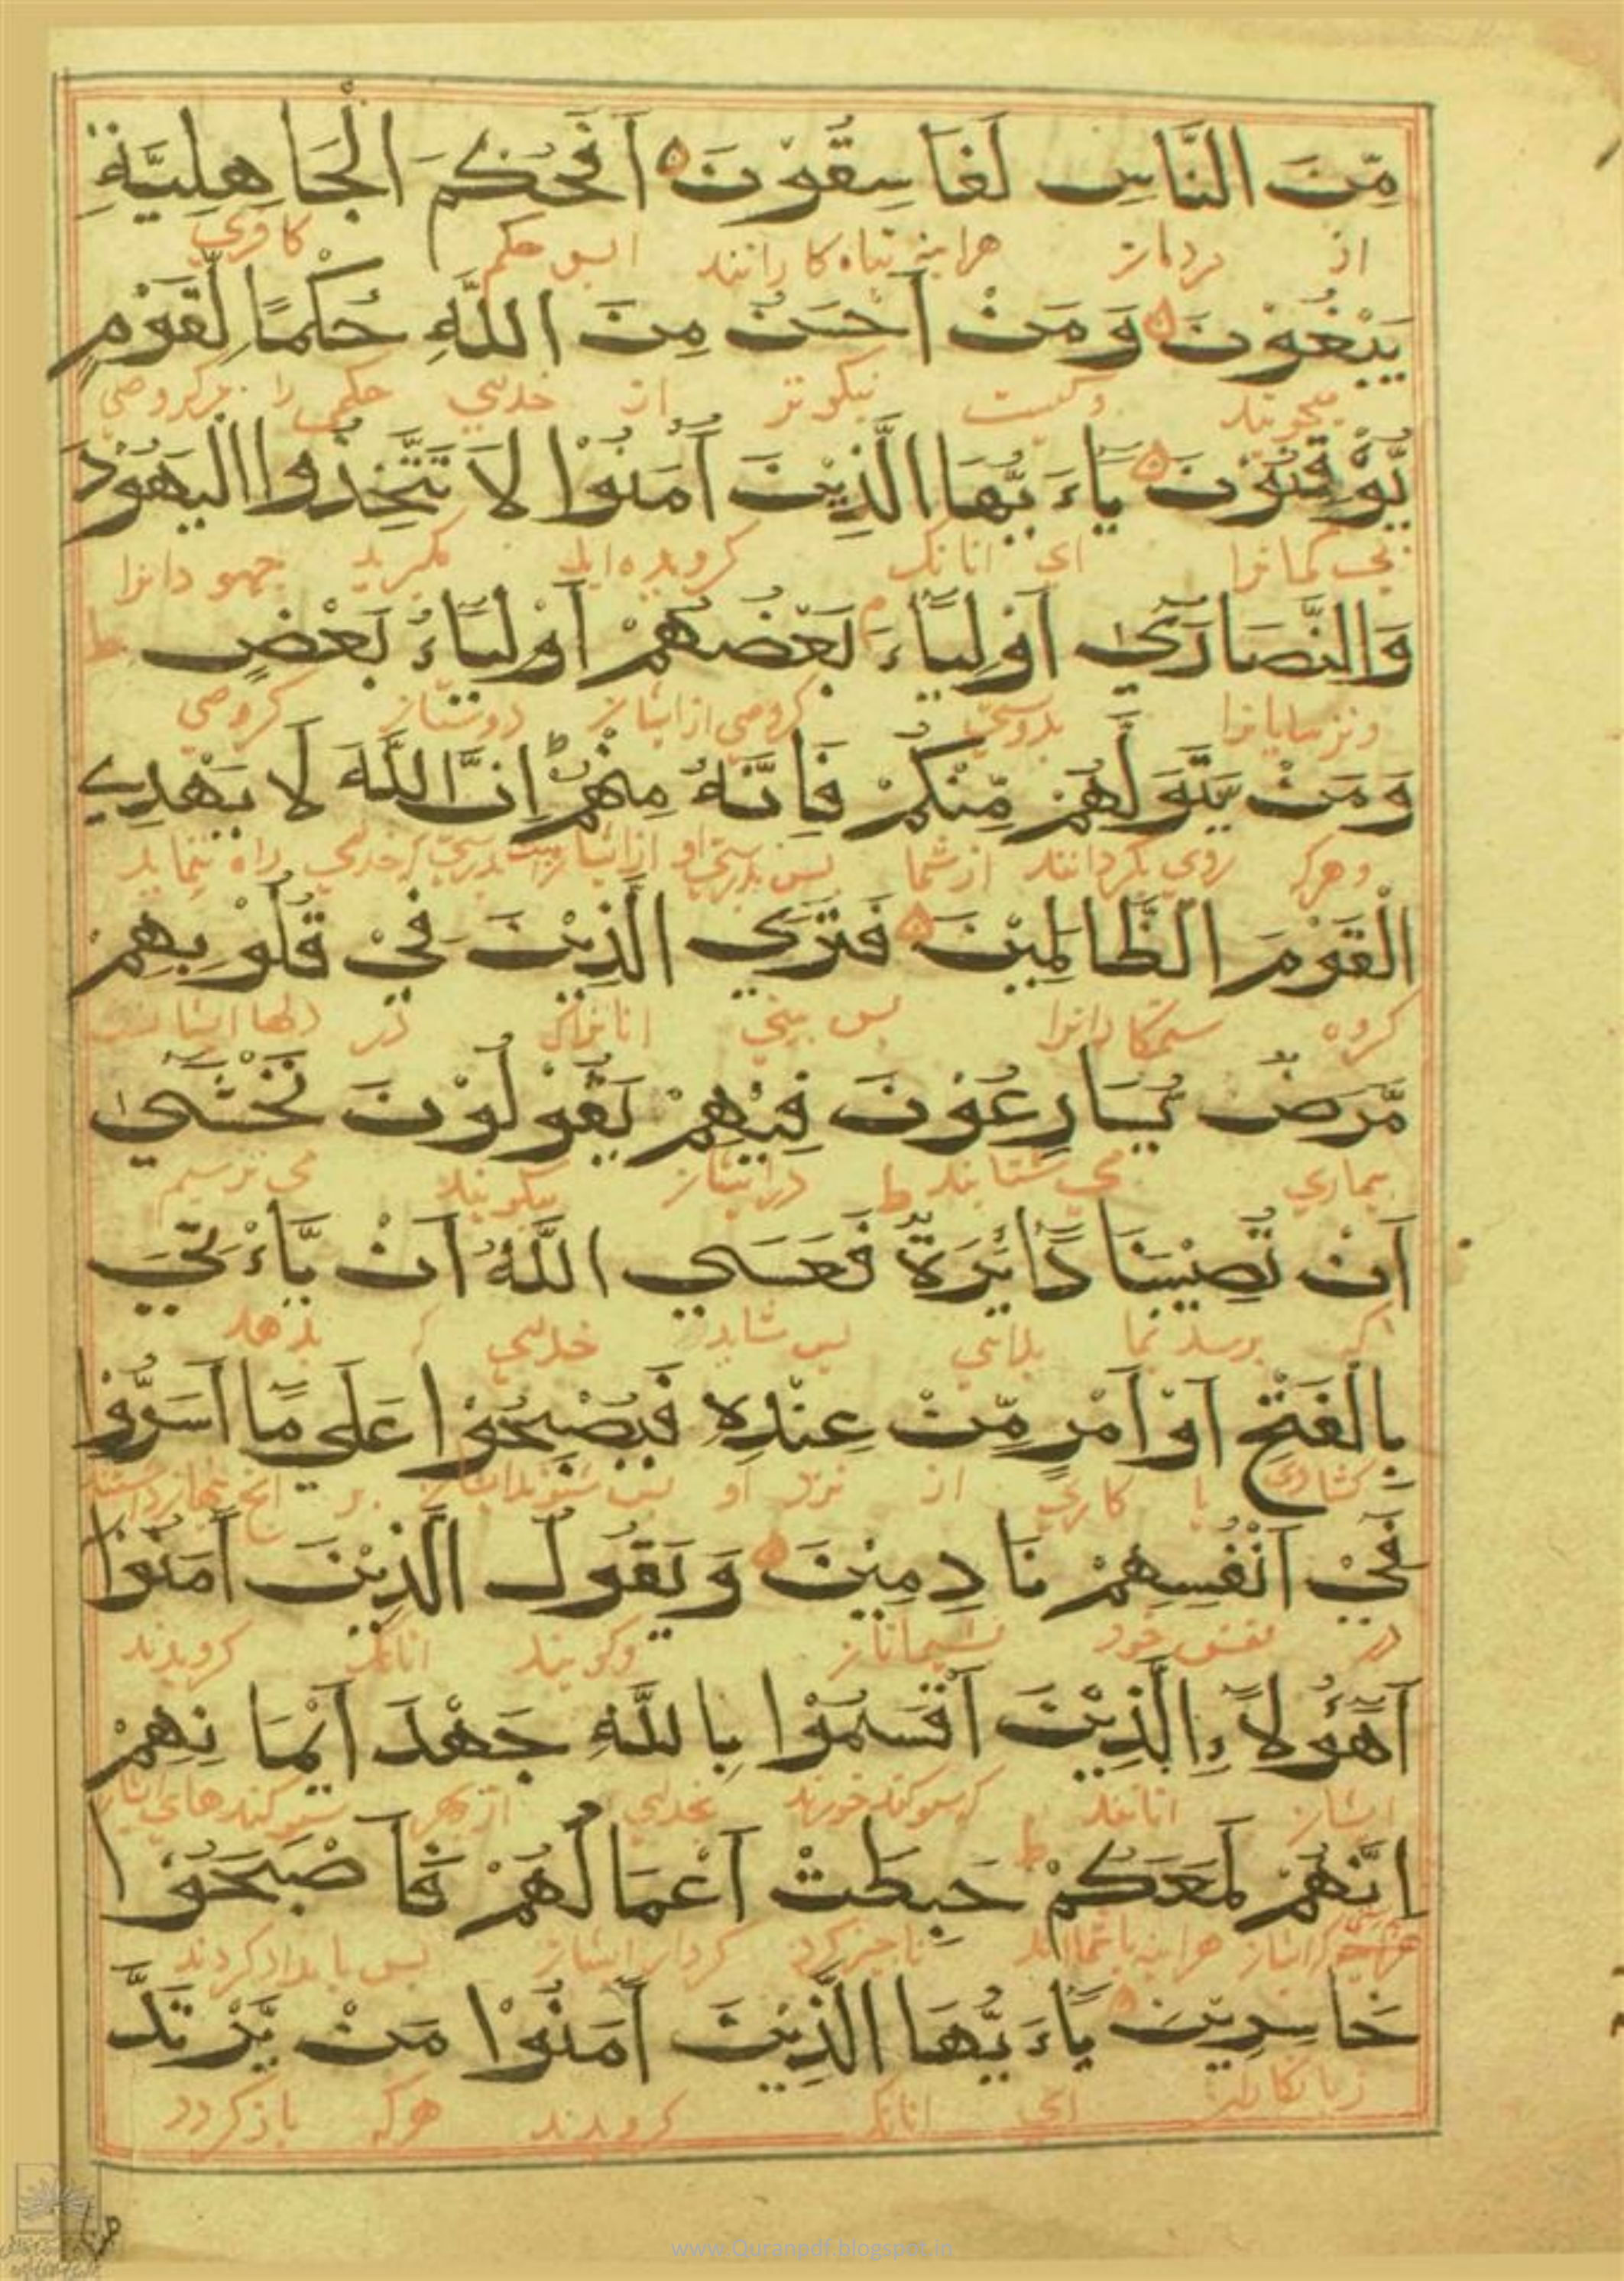 مِّنَ النَّاسِ لَفَاسِقُوْنَ اَفَحُكْمَ الْجَاهِلِيَّةِ
از مردمان هراینه تباه کارانند ایس حکم کافری
يَبْغُوْنَ وَمَنْ اَحْسَنُ مِنَ اللَّهِ حُكْمًا لِّقَوْمٍ
میجویند وکیست نیکوتر از خدای حکمی را مر گروهی
يُّوْقِنُوْنَ يَاءَيُّهَا الَّذِيْنَ آمَنُوْا لَا تَتَّخِذُوا الْيَهُوْدَ
بی کمانرا ای انانک کرویده اید مگیرید جهودانرا
وَالنَّصَارَىٰ اَوْلِيَاءَ بَعْضُهُمْ اَوْلِيَاءُ بَعْضٍ ط
وترسایانرا بدوستی کروهی ازایشان دوستان کروهی
وَمَنْ يَّتَوَلَّهُمْ مِّنْكُمْ فَاِنَّهُ مِنْهُمْ اِنَّ اللَّهَ لَا يَهْدِي
وهرک روی بگردانند ازشما پس بدرستی او ازایشانست بدرستی ک خدای راه ننماید
الْقَوْمَ الظَّالِمِيْنَ فَتَرَي الَّذِيْنَ فِيْ قُلُوْبِهِمْ
کروه ستمکارانرا پس بینی انانراک در دلها ایشانست
مَّرَضٌ يُسَارِعُوْنَ فِيْهِمْ يَقُوْلُوْنَ نَخْشَىٰ
بیماری می شتابند درایشان ط میگویند می ترسیم
اَنْ تُصِيْبَنَا دَائِرَةٌ فَعَسَي اللَّهُ اَنْ يَّاْءتِيَ
اک برسد بما بلائی پس شاید خدای ک بدهد
بِالْفَتْحِ اَوْ اَمْرٍ مِّنْ عِنْدِهِ فَيُصْبِحُوْا عَلَي مَا اَسَرُّوْا
کشادی یا کاری از نزد او پس شوند ایشان بر انچ پنهان داشتند
فِيْ اَنْفُسِهِمْ نَادِمِيْنَ وَيَقُوْلُ الَّذِيْنَ آمَنُوْا
در نفس خود پشیمانان وگویند انانک کرویدند
آهٰؤُلَاءِ الَّذِيْنَ اَقْسَمُوْا بِاللَّهِ جَهْدَ اَيْمَانِهِمْ
ایشان انانند ک سوکند خورند بخدای از بهر سوکندهای ایشان
اِنَّهُمْ لَمَعَكُمْ حَبِطَتْ اَعْمَالُهُمْ فَاَصْبَحُوْا
ایشان هراینه باشمااند ناچیز کرد کردار ایشان پس بامداد کردند
خَاسِرِيْنَ يَاءَيُّهَا الَّذِيْنَ آمَنُوْا مَنْ يَّرْتَدَّ
زیانکاران ای انانک کرویدند هرکه بازگردد
www.Quranpdf.blogspot.in